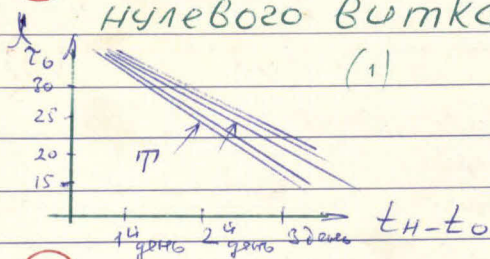 нулевого витка
τ₀
(1)
30
25
20
15
T
1й день 2й день 3 день
tн-t₀